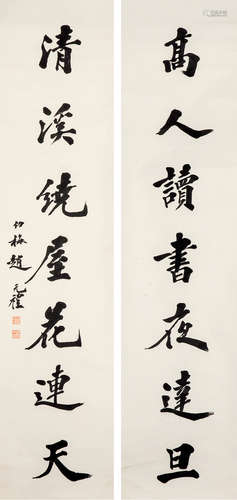 高人讀書夜達旦
清溪繞屋花連天
幼梅趙元禮